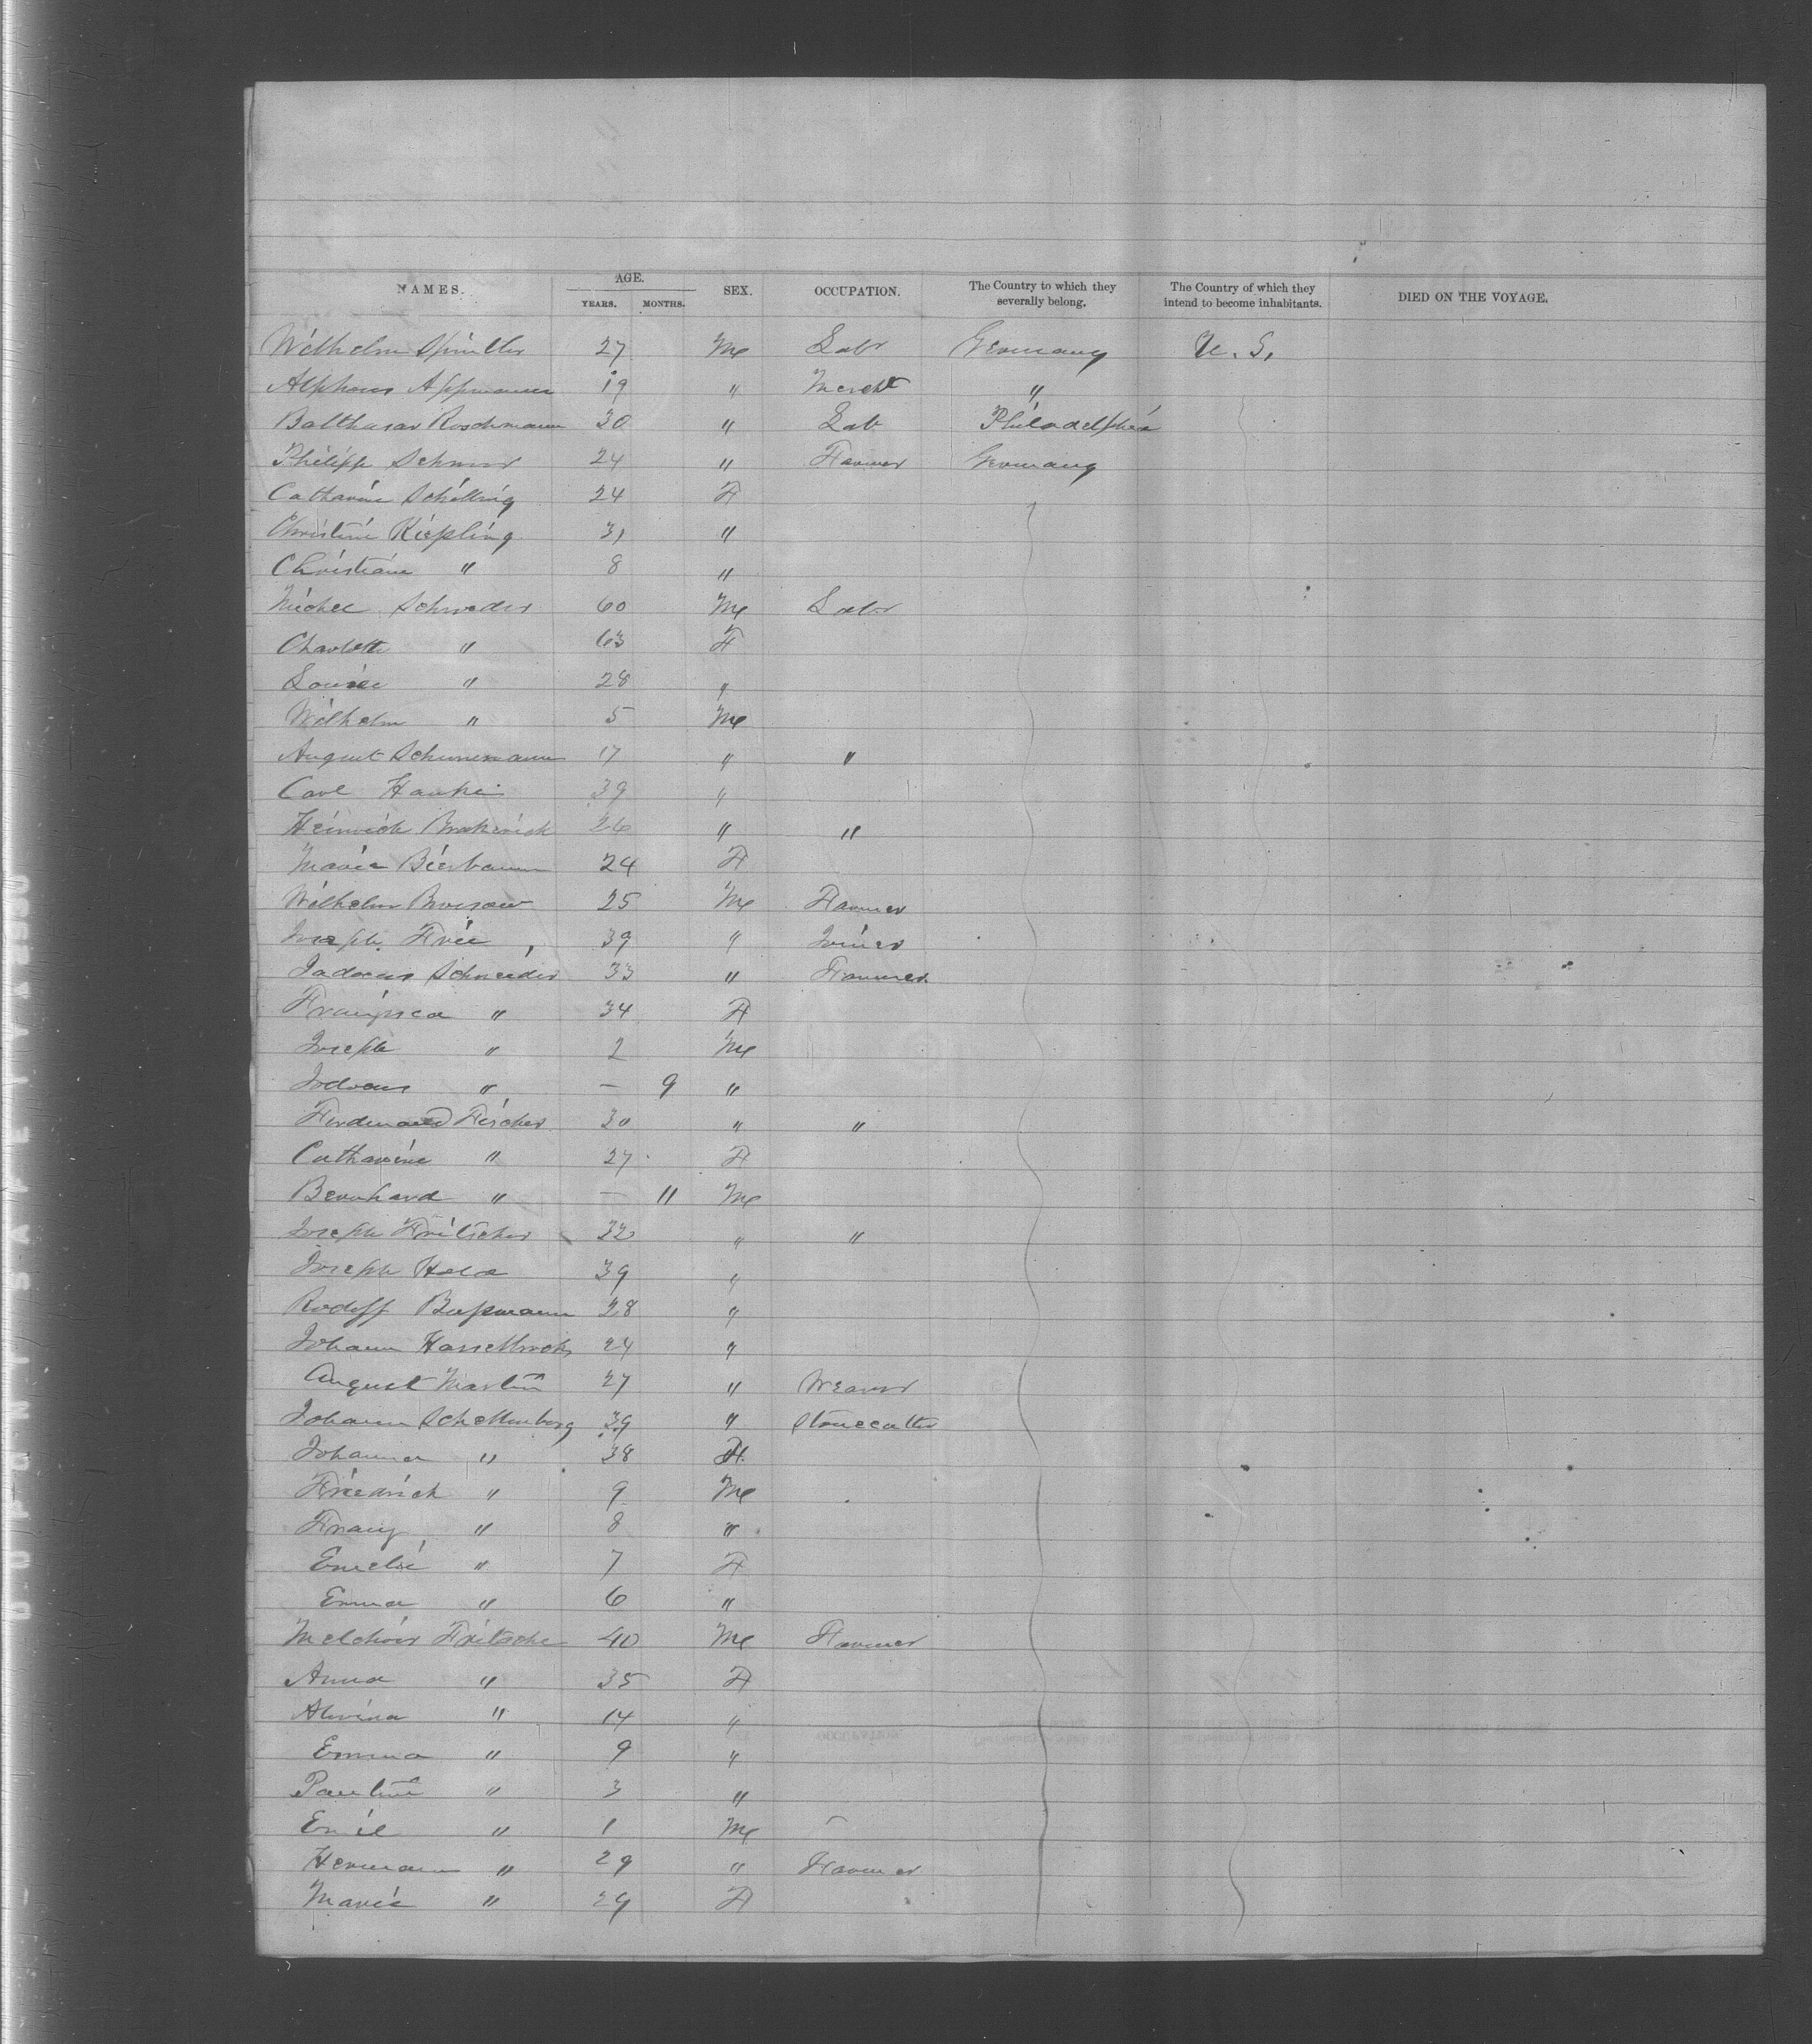 NAMES. AGE. YEARS. MONTHS. SEX. OCCUPATION. The Country to which they severally belong. The Country of which they intend to become inhabitants. DIED ON THE VOYAGE.
Wilhelm Spindler 27 M Labr Germany U. S.
Alphons Appmann 19 " Mercht "
Balthasar Roschmann 30 " Lab Philadelphia
Philipp 24 " Farmer Germany
Catharine Schilling 24 F
Christine Kiessling 31 "
Christiane " 8 "
Michel Schroeder 60 M Labr
Charlotte " 63 F
Louise " 28 "
Wilhelm " 5 M
August Schunemann 17 " "
Carl Hanke 39 "
Heinrich 26 " "
Marie Bierbaum 24 F
Wilhelm 25 M Farmer
Joseph Frei 39 " Joiner
Jadocus Schneider 33 " Farmer
Franzisca " 34 F
Joseph " 2 M
Jodocus " — 9 "
Ferdinand Fischer 30 " "
Catharine " 27 F
Bernhard " — 11 M
Joseph Fritscher 32 " "
Joseph Held 39 "
Rodolf Bussmann 28 "
Johann Hasselbrock 24 "
August Martin 27 " Weaver
Johann Schellenberg 39 " Stonecutter
Johanna " 38 F
Friedrich " 9 M
Franz " 8 "
Emelie " 7 F
Emma " 6 "
Melchior Fritsche 40 M Farmer
Anna " 35 F
Alwina " 14 "
Emma " 9 "
Pauline " 3 "
Emil " 1 M
Hermann " 29 " Farmer
Marie " 29 F